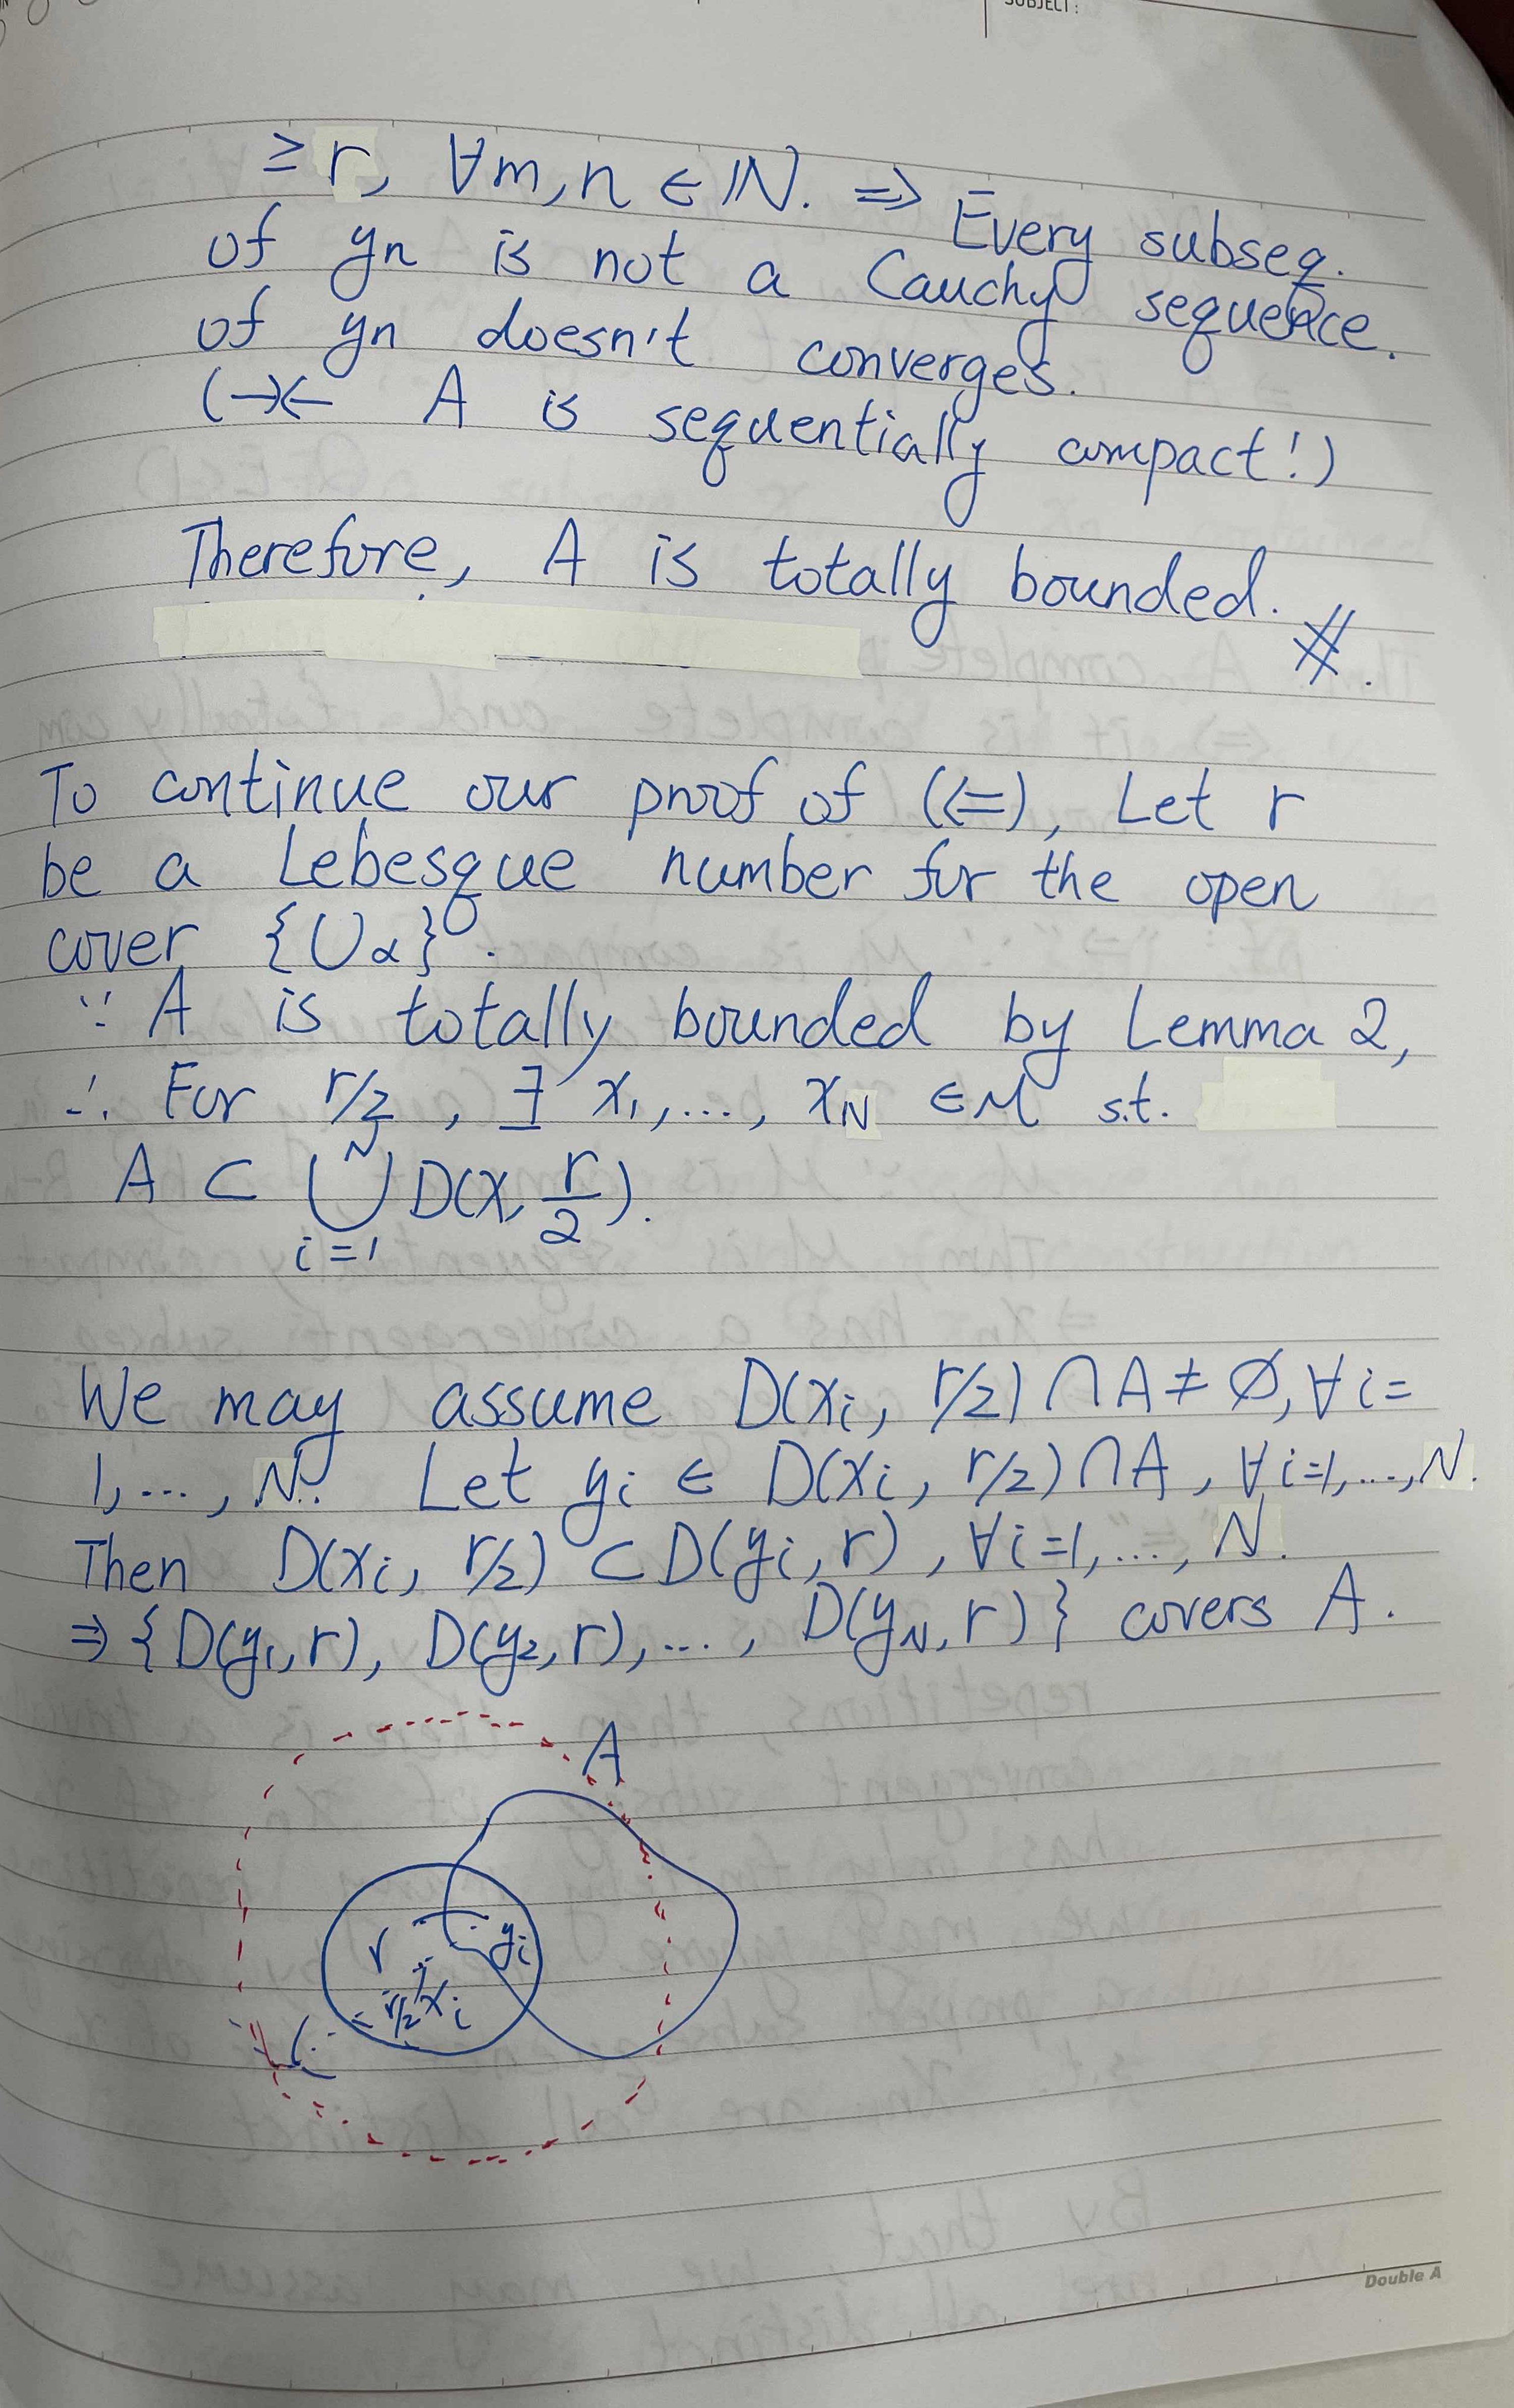 SUBJECT:
≥ r, ∀m,n ∈ ℕ. ⇒ Every subseq.
of yn is not a Cauchy sequence.
of yn doesn't converges.
(→← A is sequentially compact!)
Therefore, A is totally bounded.
#.
To continue our proof of (⇐), Let r
be a Lebesque number for the open
cover {Uα}.
∵ A is totally bounded by Lemma 2,
∴ For r/2, ∃ x1,..., xN ∈ M s.t.
A ⊂ ⋃_{i=1}^{N} D(x, r/2).
We may assume D(xi, r/2) ∩ A ≠ ∅, ∀i=
1,..., N. Let yi ∈ D(xi, r/2) ∩ A, ∀i=1,...,N.
Then D(xi, r/2) ⊂ D(yi, r), ∀i=1,..., N.
⇒ {D(y1,r), D(y2,r),..., D(yN,r)} covers A.
A
r
yi
r/2
xi
Double A